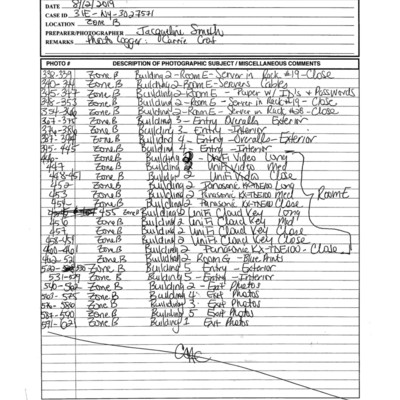 DATE 8/12/2019
CASE ID 31E-NY-3027571
LOCATION Zone B
PREPARER/PHOTOGRAPHER Jacqueline Smith
REMARKS Photo Logger: Carrie
PHOTO # DESCRIPTION OF PHOTOGRAPHIC SUBJECT / MISCELLANEOUS COMMENTS
332-339 Zone B Building 2-Room E-Server in Rack #19-Close
340-344 Zone B Building 2-Room E-Servers Cables
345-347 Zone B Building 2-Room E - Paper w/ ID's + Passwords
348-353 Zone B Building 2-Room E - Server in Rack #19 - Close
354-366 Zone B Building 2-Room E - Server in Rack - Close
367-375 Zone B Building 3-Entry Overalls Exterior
376-386 Zone B Building 3 - Entry - Interior
387-394 Zone B Building 4 - Entry-Overalls-Exterior
395-445 Zone B Building 4 - Entry - Interior
446- Zone B Building 2 - Unifi Video Long
447 Zone B Building 2 Unifi Video Med
448-451 Zone B Building 2 Unifi Video Close
452 Zone B Building 2 Panasonic KX-TNE100 Long
453 Zone B Building 2 Panasonic KX-TNE100 Med Room E
454 Zone B Building 2 Panasonic KX-TNE100 Close
455 Zone B Building 2 Unifi Cloud Key Long
456 Zone B Building 2 Unifi Cloud Key Med
457 Zone B Building 2 Unifi Cloud Key Close
458-459 Zone B Building 2 Unifi Cloud Key Close
460-461 Zone B Building 2 Panasonic KX-TNE100 - Close
462-521 Zone B Building 2 Room G - Blue Prints
522-530 Zone B Building 5 Entry - Exterior
531-539 Zone B Building 5 - Entry - Interior
540-562 Zone B Building 2 - Exit Photos
563-575 Zone B Building 4 - Exit Photos
576-586 Zone B Building 3 - Exit Photos
587-590 Zone B Building 5 Exit Photos
591-621 Zone B Building 1 Exit Photos